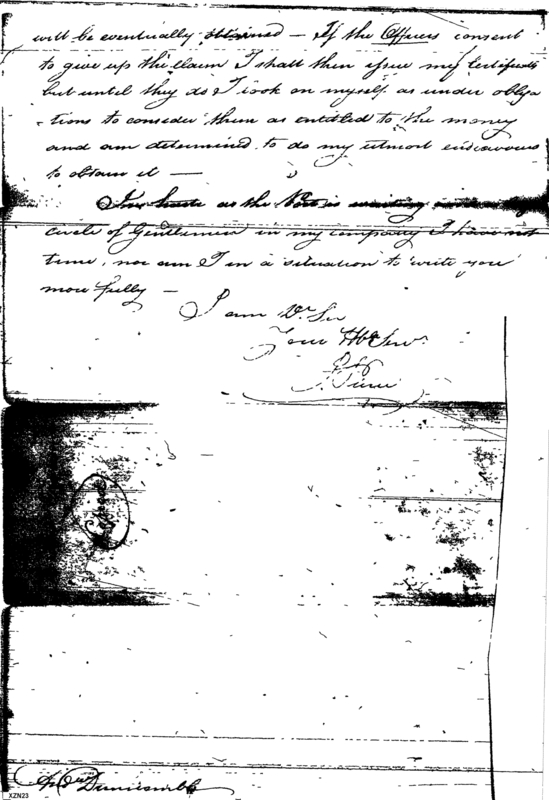 will be eventually obtained — If the Officers consent
to give up the claim I shall then issue my Certificate
but until they do I look on myself as under obliga
-tions to consider them as entitled to the money
and am determined to do my utmost endeavours
to obtain it —
In haste as the Post is waiting
circle of Gentlemen in my company I have not
time, nor am I in a situation to write you
more fully —
I am Dr Sir
Your Hble Servt
J. Pierce
XZN23